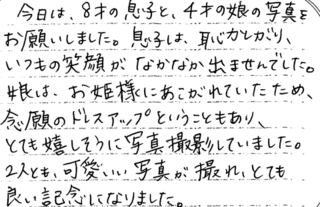 今日は、8才の息子と、4才の娘の写真を
お願いしました。息子は、恥かしがり、
いつもの笑顔がなかなか出ませんでした。
娘は、お姫様にあこがれていたため、
念願のドレスアップということもあり、
とても嬉しそうに写真撮影していました。
2人とも、可愛いい写真が撮れ、とても
良い記念になりました。